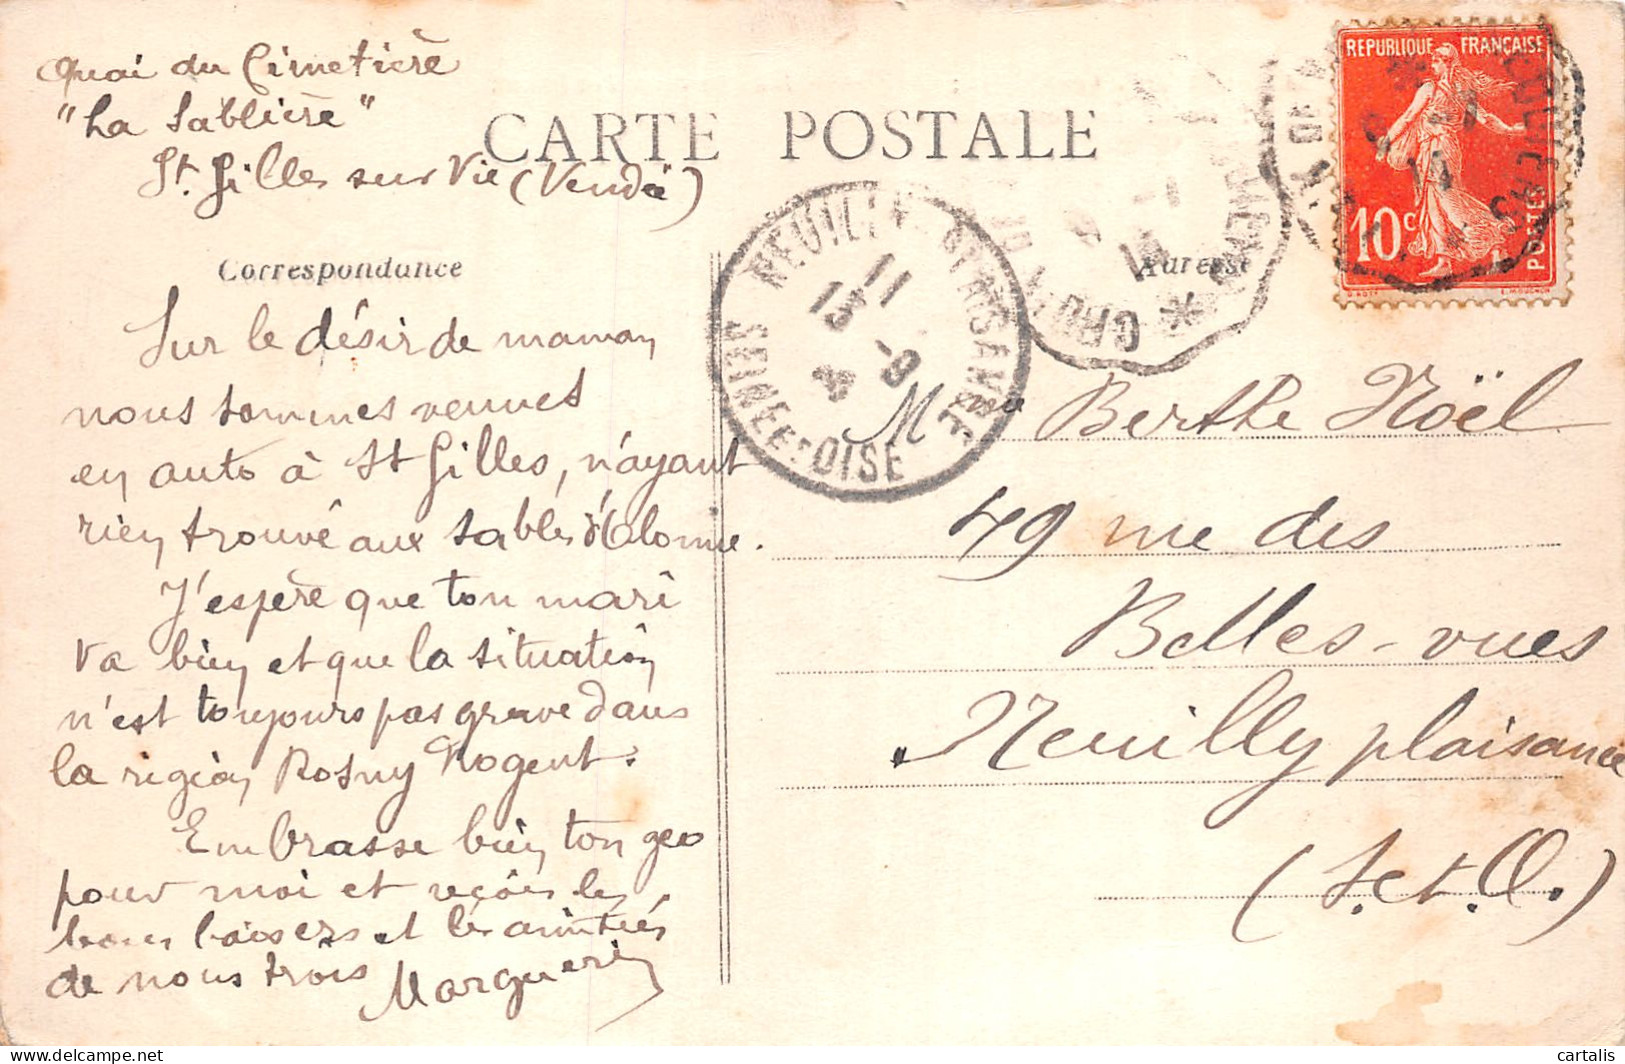 Quai du Cimetière
"La Sablière"
St. Gilles sur Vie (Vendée)
CARTE POSTALE
Correspondance
Adresse
REPUBLIQUE FRANÇAISE
10c POSTES
NEUILLY-PLAISANCE
SEINE ET OISE
11
13 -9
14
Sur le désir de maman
nous sommes venues
en auto à St Gilles, n'ayant
rien trouvé aux Sables d'Olonne.
J'espère que ton mari
va bien et que la situation
n'est toujours pas grave dans
la région Rosny Nogent.
Embrasse bien ton geo
pour moi et reçois les
bons baisers et les amitiés
de nous trois Marguerite
M Berthe Noël
49 rue des
Belles-vues
Neuilly plaisance
(S. et. O.)
cartalis